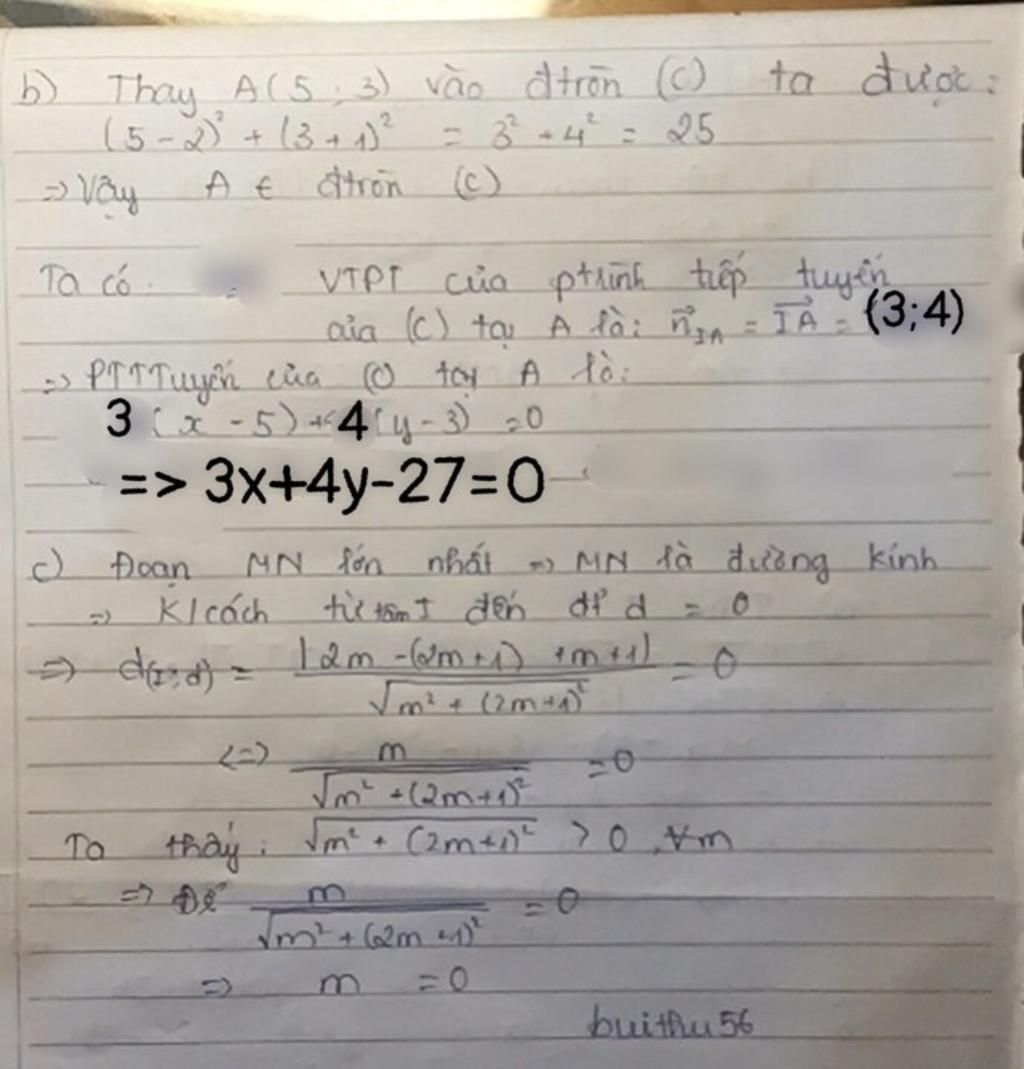 b) Thay A(5;3) vào đtròn (C) ta được:
(5-2)² + (3+1)² = 3² + 4² = 25
=> Vậy A ∈ đtròn (C)
Ta có. VTPT của ptrình tiếp tuyến
của (C) tại A là: n⃗_IA = I⃗A = (3;4)
=> PTTTuyến của (C) tại A là:
3(x-5)+4(y-3) =0
=> 3x+4y-27=0
c) Đoạn MN lớn nhất => MN là đường kính
=> K/cách từ tâm I đến đt d = 0
=> d(I;d) = |2m -(2m+1) +m+1| / √(m² + (2m+1)²) = 0
<=> m / √(m² + (2m+1)²) =0
Ta thấy: √(m² + (2m+1)²) > 0, ∀m
=> Để m / √(m² + (2m+1)²) = 0
=> m = 0
buithu56